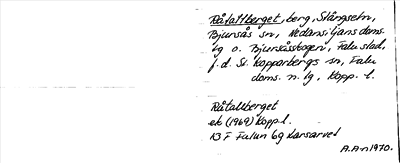 Råtallberget, berg, Stångseln,
Bjursås sn, Nedansiljans doms.
tg o. Bjursåsskogen, Falu stad,
f.d. St. Kopparbergs sn, Falu
doms. n. tg, Kopp. l.
Råtallberget
ek (1969) Kopp.l.
13 F Falun 6g Lansarvet
A.A-n 1970.